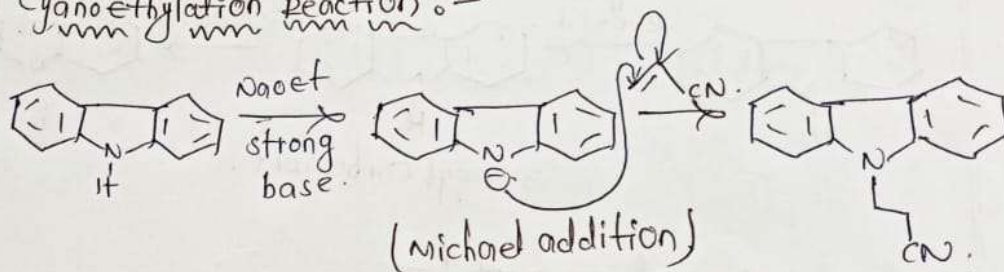 Cyanoethylation Reaction :-
NaOEt
strong
base.
N
H
N
⊖
CN.
N
CN.
(Michael addition)